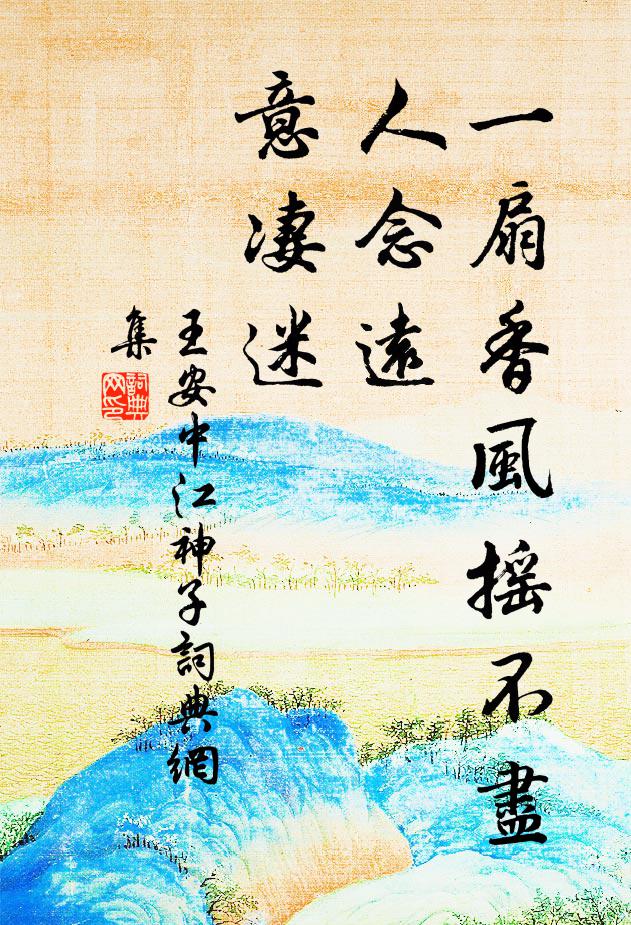 一扇香風搖不盡
人念遠
意凄迷
王安中江神子詞典網
集
詞典
网印